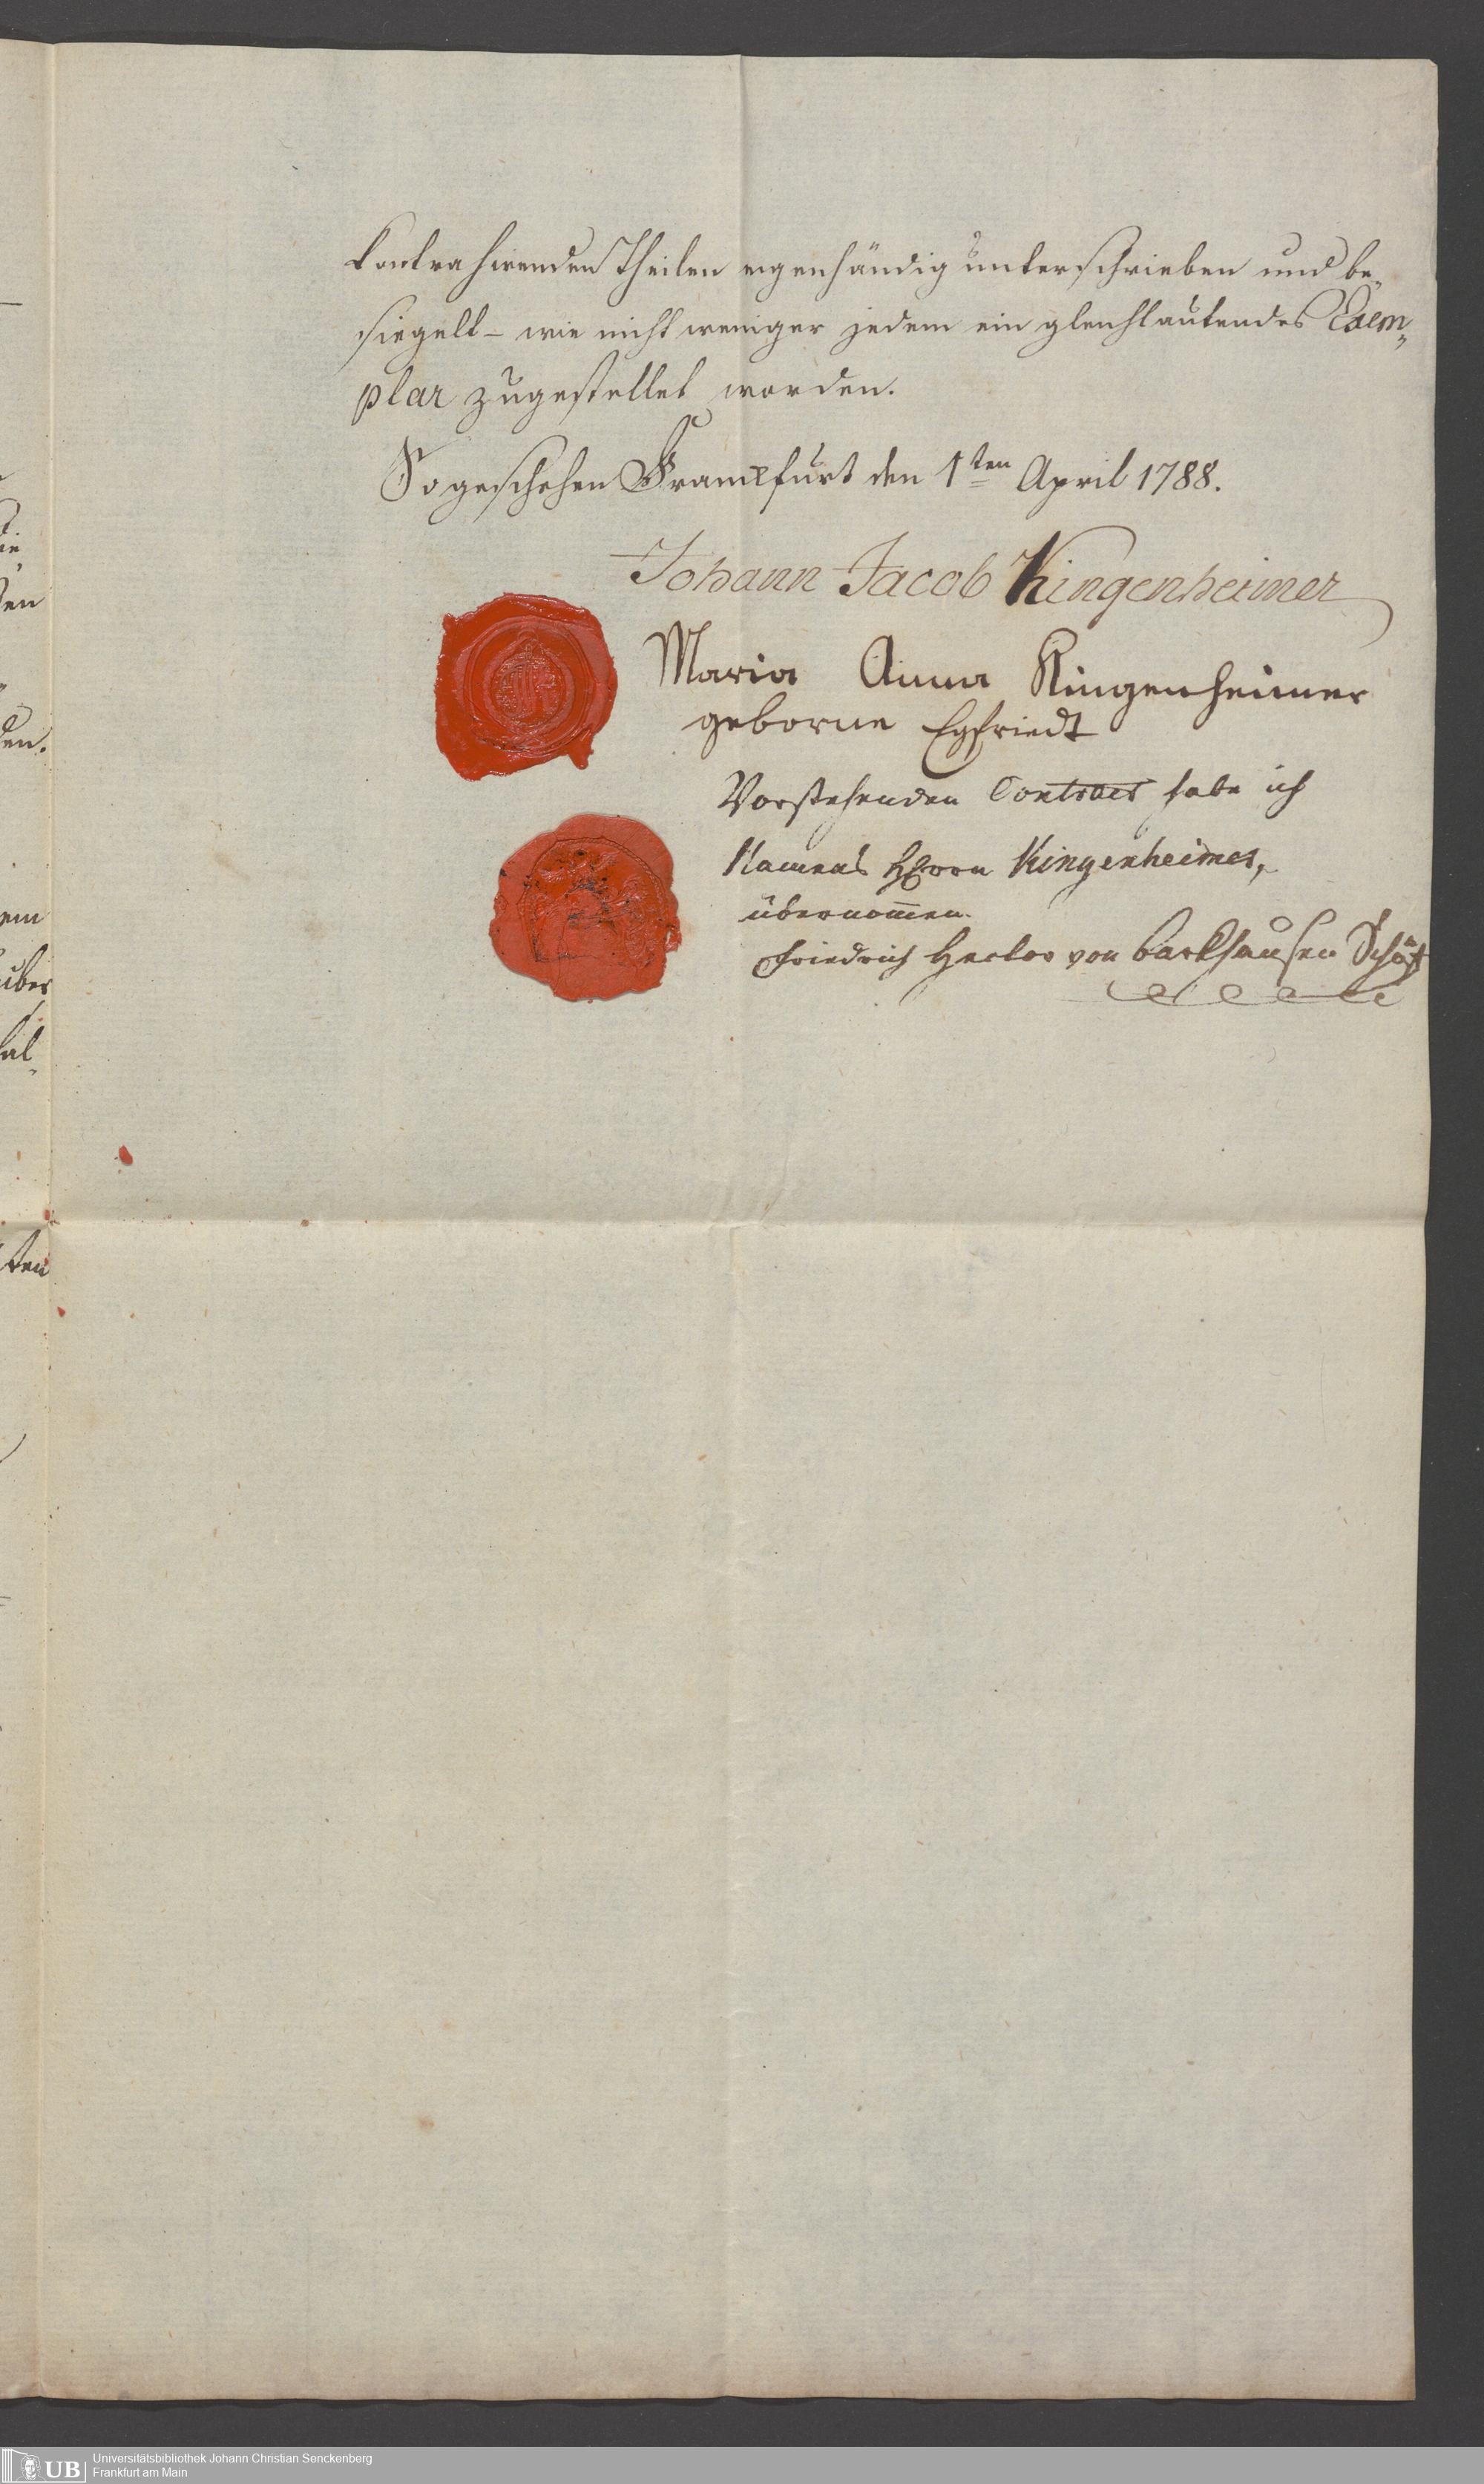 kontrahirenden Theilen eigenhändig unterschrieben und be„
siegelt – wie nicht weniger jedem ein gleichlautendes Exem„
plar zugestellet worden.
So geschehen Frankfurt den 1ten April 1788.
Johann Jacob Kingenheimer
Maria Anna Kingenheimer
geborne Egfriedt
Vorstehenden Contract habe ich
Namens Herrn Kingenheimer,
übernom̅en.
Friedrich Hector von Barkhausen
den.
em
über
hal„
ten
UB
Universitätsbibliothek Johann Christian Senckenberg
Frankfurt am Main